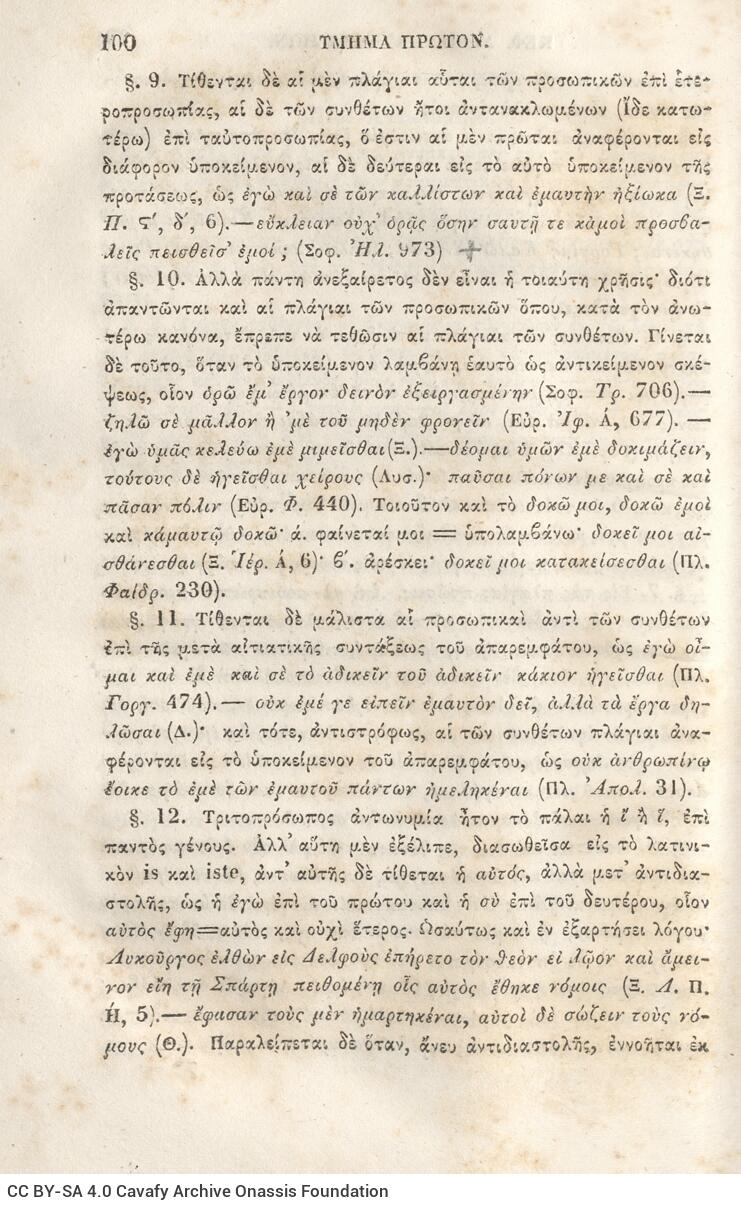 100 ΤΜΗΜΑ ΠΡΩΤΟΝ.
§. 9. Τίθενται δὲ αἱ μὲν πλάγιαι αὗται τῶν προσωπικῶν ἐπὶ ἑτε-
ροπροσωπίας, αἱ δὲ τῶν συνθέτων ἤτοι ἀντανακλωμένων (Ἴδε κατω-
τέρω) ἐπὶ ταὐτοπροσωπίας, ὅ ἐστιν αἱ μὲν πρῶται ἀναφέρονται εἰς
διάφορον ὑποκείμενον, αἱ δὲ δεύτεραι εἰς τὸ αὐτὸ ὑποκείμενον τῆς
προτάσεως, ὡς ἐγὼ καὶ σὲ τῶν καλλίστων καὶ ἐμαυτὴν ἠξίωκα (Ξ.
Π. Ϛ′, δ′, 6).—εὔκλειαν οὐχ' ὁρᾷς ὅσην σαυτῇ τε κἀμοὶ προσβα-
λεῖς πεισθεῖσ' ἐμοί; (Σοφ. Ἠλ. 973) +
§. 10. Ἀλλὰ πάντη ἀνεξαίρετος δὲν εἶναι ἡ τοιαύτη χρῆσις· διότι
ἀπαντῶνται καὶ αἱ πλάγιαι τῶν προσωπικῶν ὅπου, κατὰ τὸν ἀνω-
τέρω κανόνα, ἔπρεπε νὰ τεθῶσιν αἱ πλάγιαι τῶν συνθέτων. Γίνεται
δὲ τοῦτο, ὅταν τὸ ὑποκείμενον λαμβάνῃ ἑαυτὸ ὡς ἀντικείμενον σκέ-
ψεως, οἷον ὁρῶ ἔμ' ἔργον δεινὸν ἐξειργασμένην (Σοφ. Τρ. 706).—
ζηλῶ σὲ μᾶλλον ἢ 'μὲ τοῦ μηδὲν φρονεῖν (Εὐρ. Ἰφ. Ά, 677). —
ἐγὼ ὑμᾶς κελεύω ἐμὲ μιμεῖσθαι (Ξ.).—δέομαι ὑμῶν ἐμὲ δοκιμάζειν,
τούτους δὲ ἡγεῖσθαι χείρους (Λυσ.)· παῦσαι πόνων με καὶ σὲ καὶ
πᾶσαν πόλιν (Εὐρ. Φ. 440). Τοιοῦτον καὶ τὸ δοκῶ μοι, δοκῶ ἐμοὶ
καὶ κἀμαυτῷ δοκῶ· ά. φαίνεταί μοι = ὑπολαμβάνω· δοκεῖ μοι αἰ-
σθάνεσθαι (Ξ. Ἱέρ. Ά, 6)· β′. ἀρέσκει· δοκεῖ μοι κατακείσεσθαι (Πλ.
Φαίδρ. 230).
§. 11. Τίθενται δὲ μάλιστα αἱ προσωπικαὶ ἀντὶ τῶν συνθέτων
ἐπὶ τῆς μετὰ αἰτιατικῆς συντάξεως τοῦ ἀπαρεμφάτου, ὡς ἐγὼ οἶ-
μαι καὶ ἐμὲ καὶ σὲ τὸ ἀδικεῖν τοῦ ἀδικεῖν κάκιον ἡγεῖσθαι (Πλ.
Γοργ. 474).— οὐκ ἐμέ γε εἰπεῖν ἐμαυτὸν δεῖ, ἀλλὰ τὰ ἔργα δη-
λῶσαι (Δ.)· καὶ τότε, ἀντιστρόφως, αἱ τῶν συνθέτων πλάγιαι ἀνα-
φέρονται εἰς τὸ ὑποκείμενον τοῦ ἀπαρεμφάτου, ὡς οὐκ ἀνθρωπίνῳ
ἔοικε τὸ ἐμὲ τῶν ἐμαυτοῦ πάντων ἠμεληκέναι (Πλ. Ἀπολ. 31).
§. 12. Τριτοπρόσωπος ἀντωνυμία ἦτον τὸ πάλαι ἡ ἵ ἢ ἵ, ἐπὶ
παντὸς γένους. Ἀλλ' αὕτη μὲν ἐξέλιπε, διασωθεῖσα εἰς τὸ λατινι-
κὸν is καὶ iste, ἀντ' αὐτῆς δὲ τίθεται ἡ αὐτός, ἀλλὰ μετ' ἀντιδια-
στολῆς, ὡς ἡ ἐγὼ ἐπὶ τοῦ πρώτου καὶ ἡ σὺ ἐπὶ τοῦ δευτέρου, οἷον
αὐτὸς ἔφη=αὐτὸς καὶ οὐχὶ ἕτερος. Ὡσαύτως καὶ ἐν ἐξαρτήσει λόγου·
Λυκοῦργος ἐλθὼν εἰς Δελφοὺς ἐπήρετο τὸν θεὸν εἰ λῷον καὶ ἄμει-
νον εἴη τῇ Σπάρτῃ πειθομένῃ οἷς αὐτὸς ἔθηκε νόμοις (Ξ. Λ. Π.
Ή, 5).— ἔφασαν τοὺς μὲν ἡμαρτηκέναι, αὐτοὶ δὲ σώζειν τοὺς νό-
μους (Θ.). Παραλείπεται δὲ ὅταν, ἄνευ ἀντιδιαστολῆς, ἐννοῆται ἐκ
CC BY-SA 4.0 Cavafy Archive Onassis Foundation